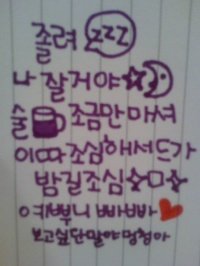 졸려 zzz
나 잘거야
술 조금만 마셔
이따 조심해서드가
밤길조심
여뿌니 빠빠
보고싶단말야 멍청아